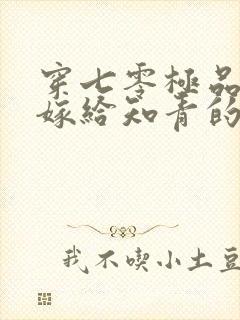 穿七零極品
嫁給知青的
我不喫小土豆